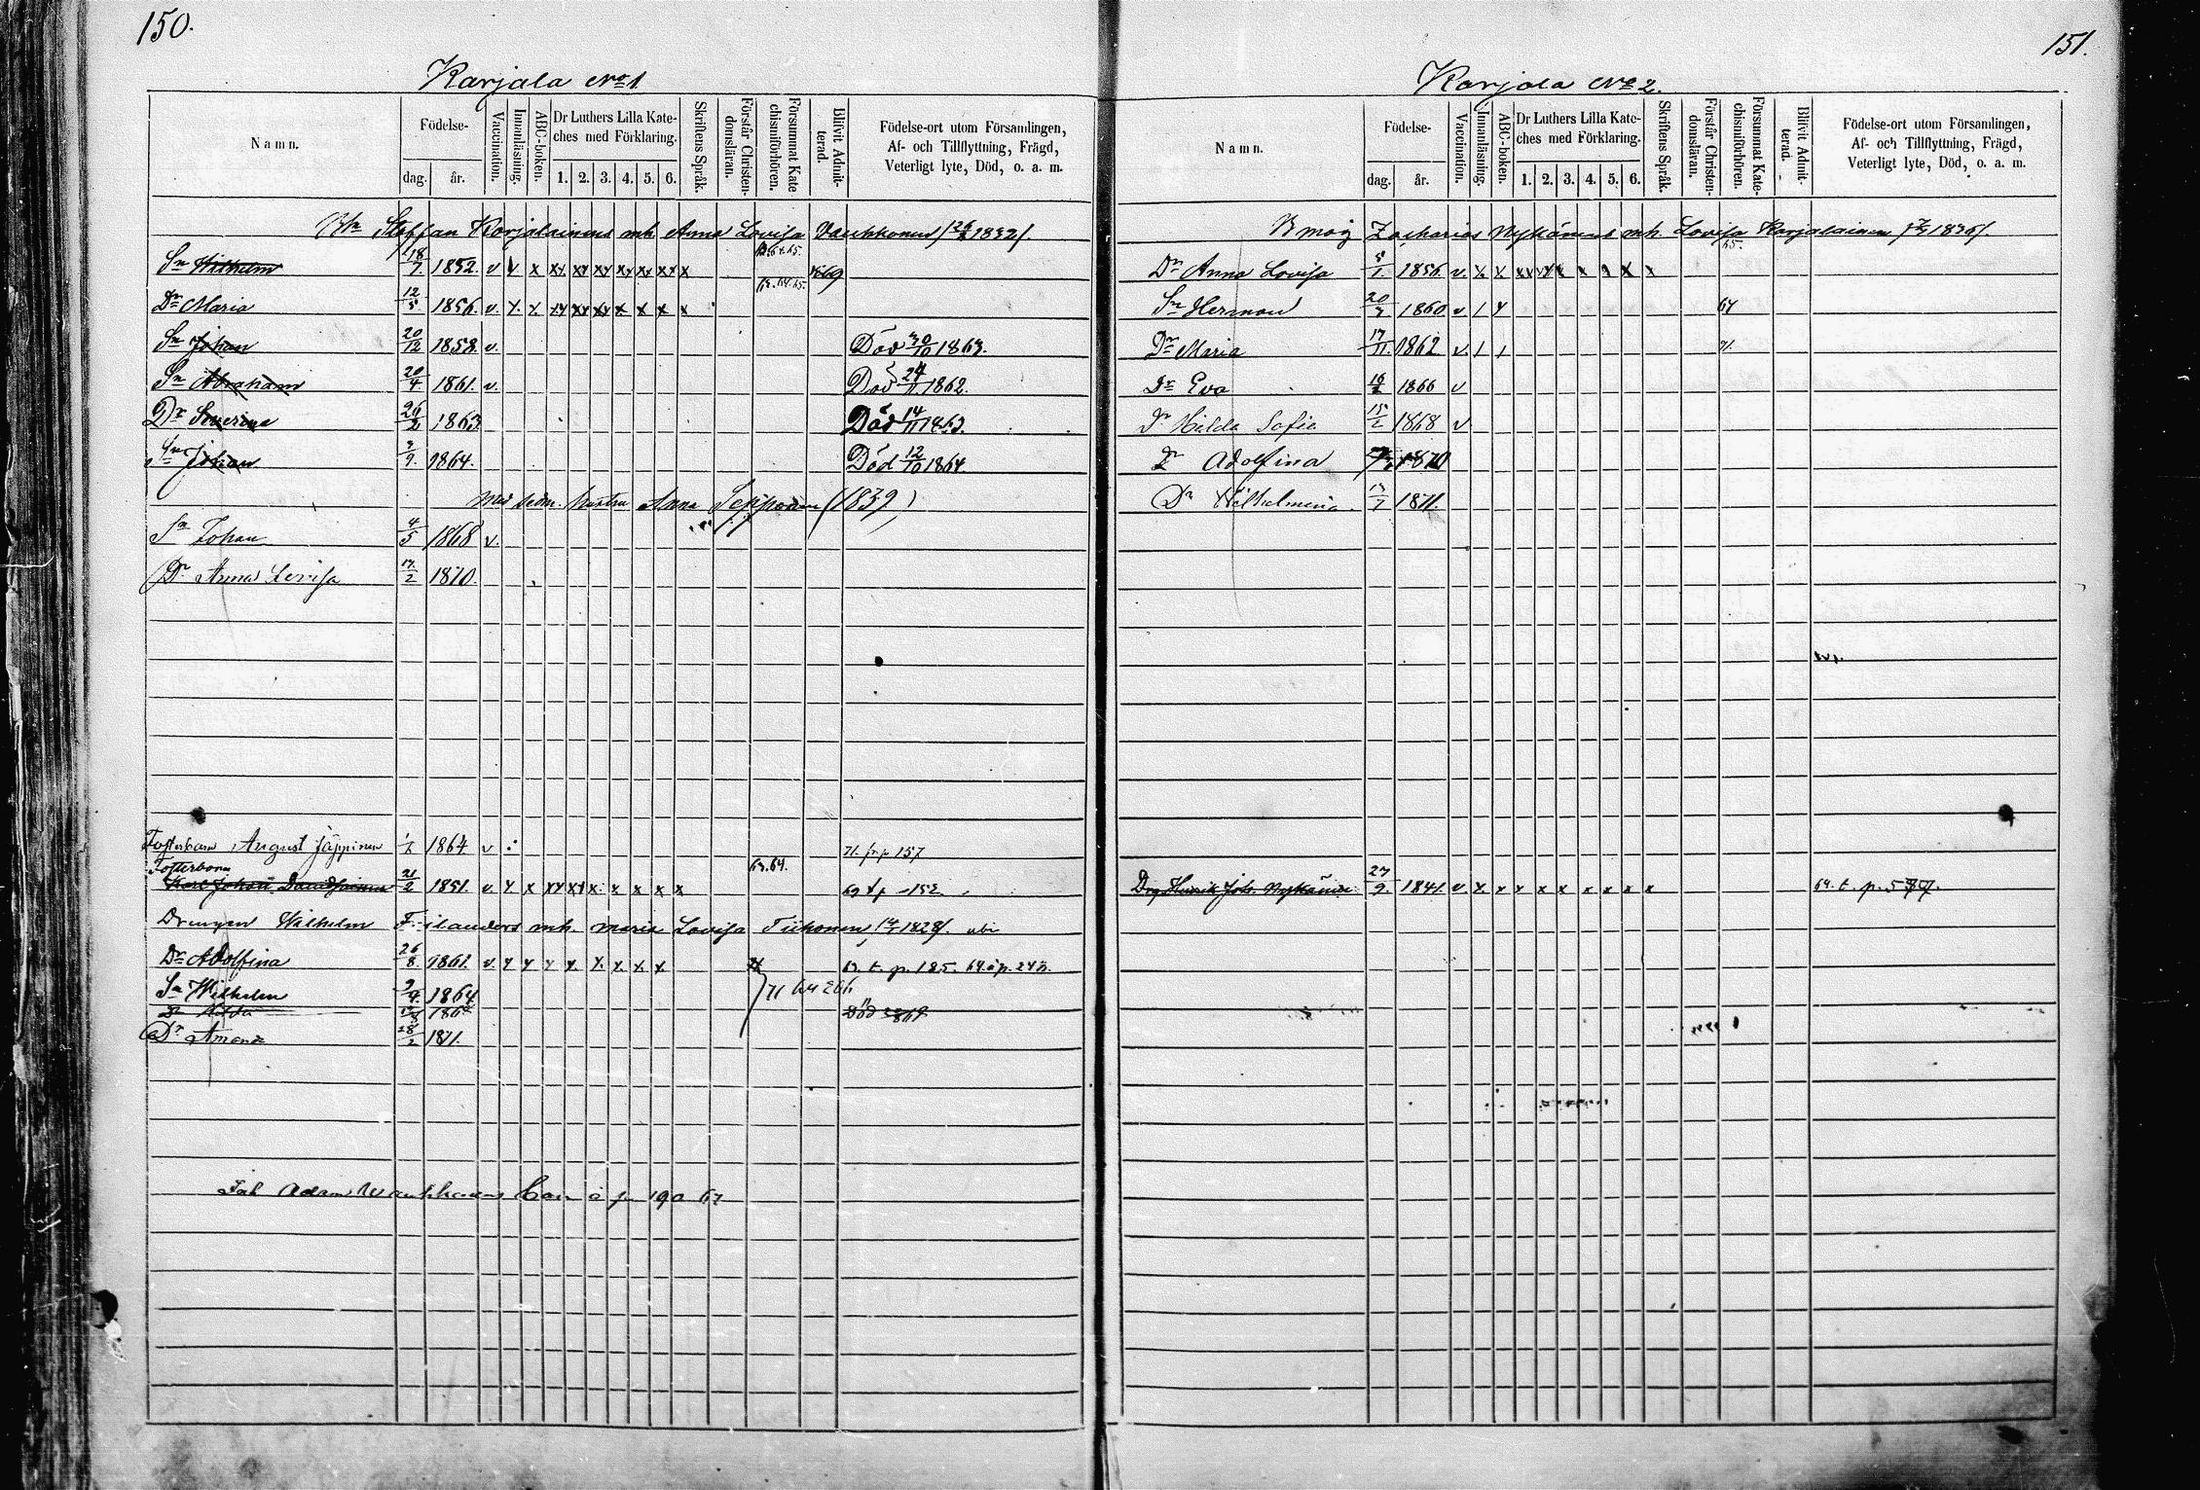 150.
Karjala No 1.
Namn.
Födelse-
dag.
år.
Vaccination.
Innanläsning.
ABC-boken.
Dr Luthers Lilla Kate-
ches med Förklaring.
1. 2. 3. 4. 5. 6.
Skriftens Språk.
Förstår Christen-
domsläran.
Försummat Kate
chismiförhören.
Blifvit Admit-
terad.
Födelse-ort utom Församlingen,
Af- och Tillflyttning, Frägd,
Veterligt lyte, Död, o. a. m.
Staffan Karjalainens mh. Anna Lovisa Vauhkonen 1832
63. 64. 65.
Sn Wilhelm 18/7 1852. v v x xx xx xx xx xx xx x 69
63. 64. 65.
Dr Maria 12/5 1856. v. x x xx xx xx x x x x
Sn Johan 20/12 1858. v. Död 30/10 1863.
Sn Abraham 20/4 1861. v. Död 24/11 1862.
Dr Severina 26/2 1863 Död 14/11 1863.
Sn Johan 2/9. 1864. Död 12/10 1864
med hustru Anna (1839)
Sn Johan 4/5 1868 v.
Dr Anna Lovisa 17/2 1870
Fosterbarn August Jäppinen 1864 v 71. fr p 157
Fosterbarn 63. 64.
Karl Johan 21/2 1851. v. x x xx xx x. x x x x 69 t p 152
Drengen Wilhelm Filanders mh. Maria Lovisa Tiihonen, 1828
Dr Adolfina 26/8. 1861. v. x x x x. x. x. x x. 63. t. p. 185. 64. å p. 242.
Sn Wilhelm 9/4. 1864 71
Dr Hilda Död 1869
Dr Amanda 28/2 1871.
Adam Vauhkonens barn å p 190 67
151.
Karjala No 2.
Namn.
Födelse-
dag.
år.
Vaccination.
Innanläsning.
ABC-boken.
Dr Luthers Lilla Kate-
ches med Förklaring.
1. 2. 3. 4. 5. 6.
Skriftens Språk.
Förstår Christen-
domsläran.
Försummat Kate-
chismiförhören.
Blifvit Admit-
terad.
Födelse-ort utom Församlingen,
Af- och Tillflyttning, Frägd,
Veterligt lyte, Död, o. a. m.
Bmåg Zacharias Nykänens mh. Lovisa Karjalainen 1836
65.
Dr Anna Lovisa 5/1 1856. v. x x xx xx x x x x x
Sn Herman 20/3 1860 v 1 x 67
Dr Maria 17/11. 1862 v. 1 1 71.
Dr Eva 1866 v
Dr Hilda Sofia 15/2 1868 v
Dr Adolfina 1870
Dr Wilhelmina 13/7 1871.
Drg Henrik Joh. Nykänen 27/9. 1841. v x x x x x x x x x 64. t. p.